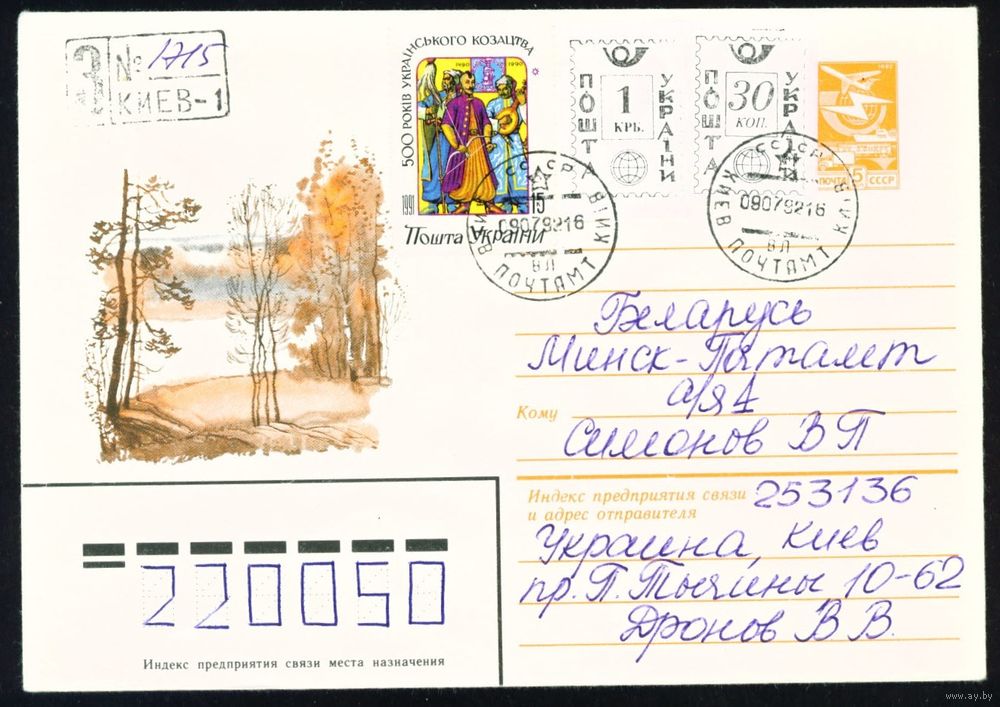 З № 1715
КИЕВ-1
500 РОКІВ УКРАЇНСЬКОГО КОЗАЦТВА
1490 1990
1991
15
Пошта України
ПОШТА УКРАЇНИ
1
КРБ.
ПОШТА УКРАЇНИ
30
КОП.
1982
ПОЧТА 5 СССР
СССР
КИЇВ
09079216
ВЛ
КИЕВ ПОЧТАМТ
СССР
КИЇВ
09079216
ВЛ
КИЕВ ПОЧТАМТ
Беларусь
Минск-Почтамт
а/я 1
Кому
Симонов В П
Индекс предприятия связи
и адрес отправителя
253136
Украина, Киев
пр. П. Тычины 10-62
Дронов В В.
220050
Индекс предприятия связи места назначения
www.ay.by